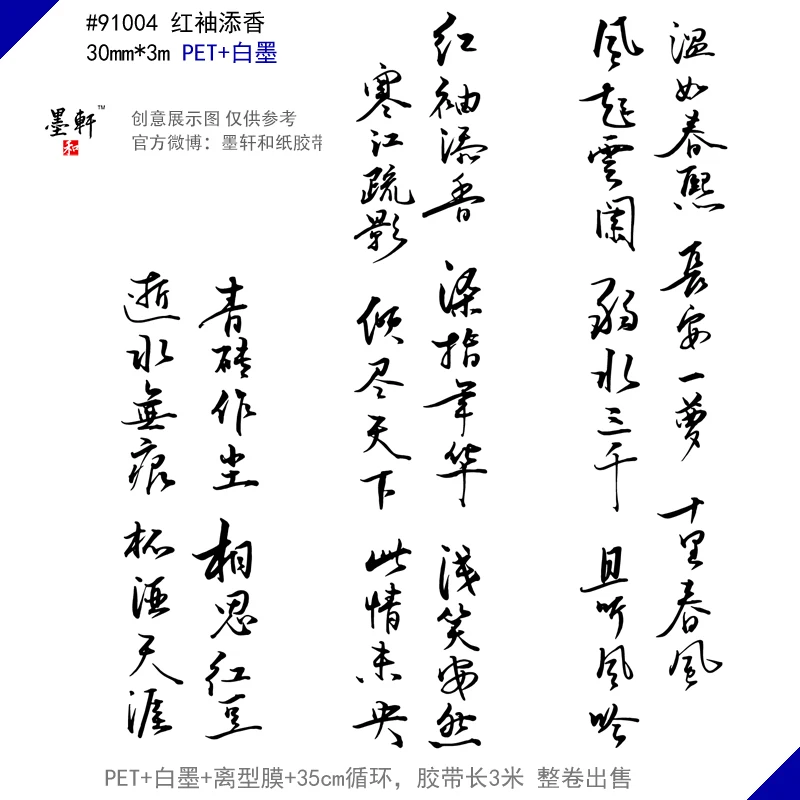 #91004 红袖添香
30mm*3m PET+白墨
墨軒™
和
创意展示图 仅供参考
官方微博：墨轩和纸胶带
温如春熙 長安一夢 十里春风
风起雲阑 弱水三千 且听风吟
红袖添香 染指年华 浅笑安然
寒江疏影 倾尽天下 此情未央
青砖作尘 相思红豆
逝水無痕 杯酒天涯
PET+白墨+离型膜+35cm循环，胶带长3米 整卷出售